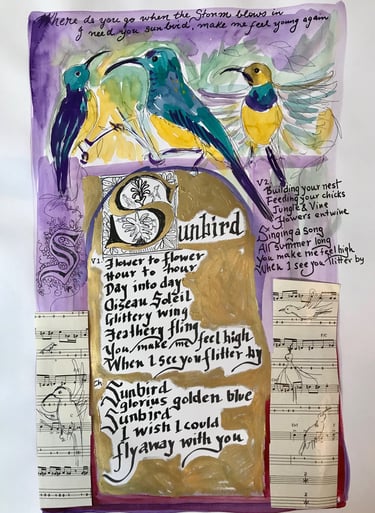 Where do you go when the Storm blows in
I need you sunbird, make me feel young again
Sunbird
V1.
Flower to flower
Hour to hour
Day into day
Oiseau Soleil
Glittery wing
Feathery fling
You make me feel high
When I see you flitter by
Sunbird
glorius golden blue
Sunbird
I wish I could
fly away with you
V2.
Building your nest
Feeding your chicks
Jungle & Vine
Flowers entwine
Singing a song
All summer long
You make me feel high
When I see you flitter by
S